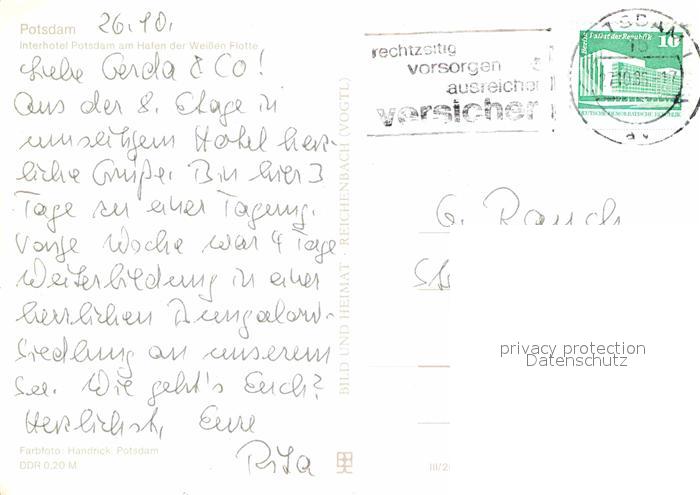 Potsdam 26.10.
Interhotel Potsdam am Hafen der Weißen Flotte
Liebe Gerda & Co!
Aus der 8. Etage in
umseitigem Hotel herz-
liche Grüße. Bin hier 3
Tage zu einer Tagung.
Vorige Woche war 4 Tage
Weiterbildung in einer
herrlichen Bungalow-
siedlung an unserem
See. Wie geht's Euch?
Herzlichst, Eure
Rita
Farbfoto: Handrick, Potsdam
DDR 0,20 M
BILD UND HEIMAT · REICHENBACH (VOGTL)
III/2
rechtzeitig
vorsorgen
ausreichen
versicher
TSDAM
15
Berlin, Palast der Republik
10
DEUTSCHE DEMOKRATISCHE REPUBLIK
G. Rauch
privacy protection
Datenschutz